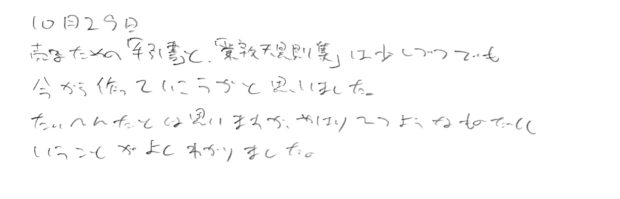 10月29日
売るための「手引書」と、「業務規則集」は少しづつでも
今から作っていこうかと思いました。
たいへんだとは思いますが、やはりひつようなものだと
いうことがよくわかりました。